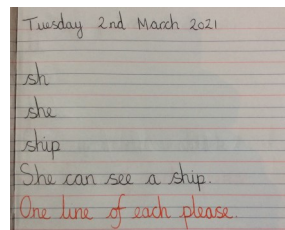 Tuesday 2nd March 2021
sh
she
ship
She can see a ship.
One line of each please.